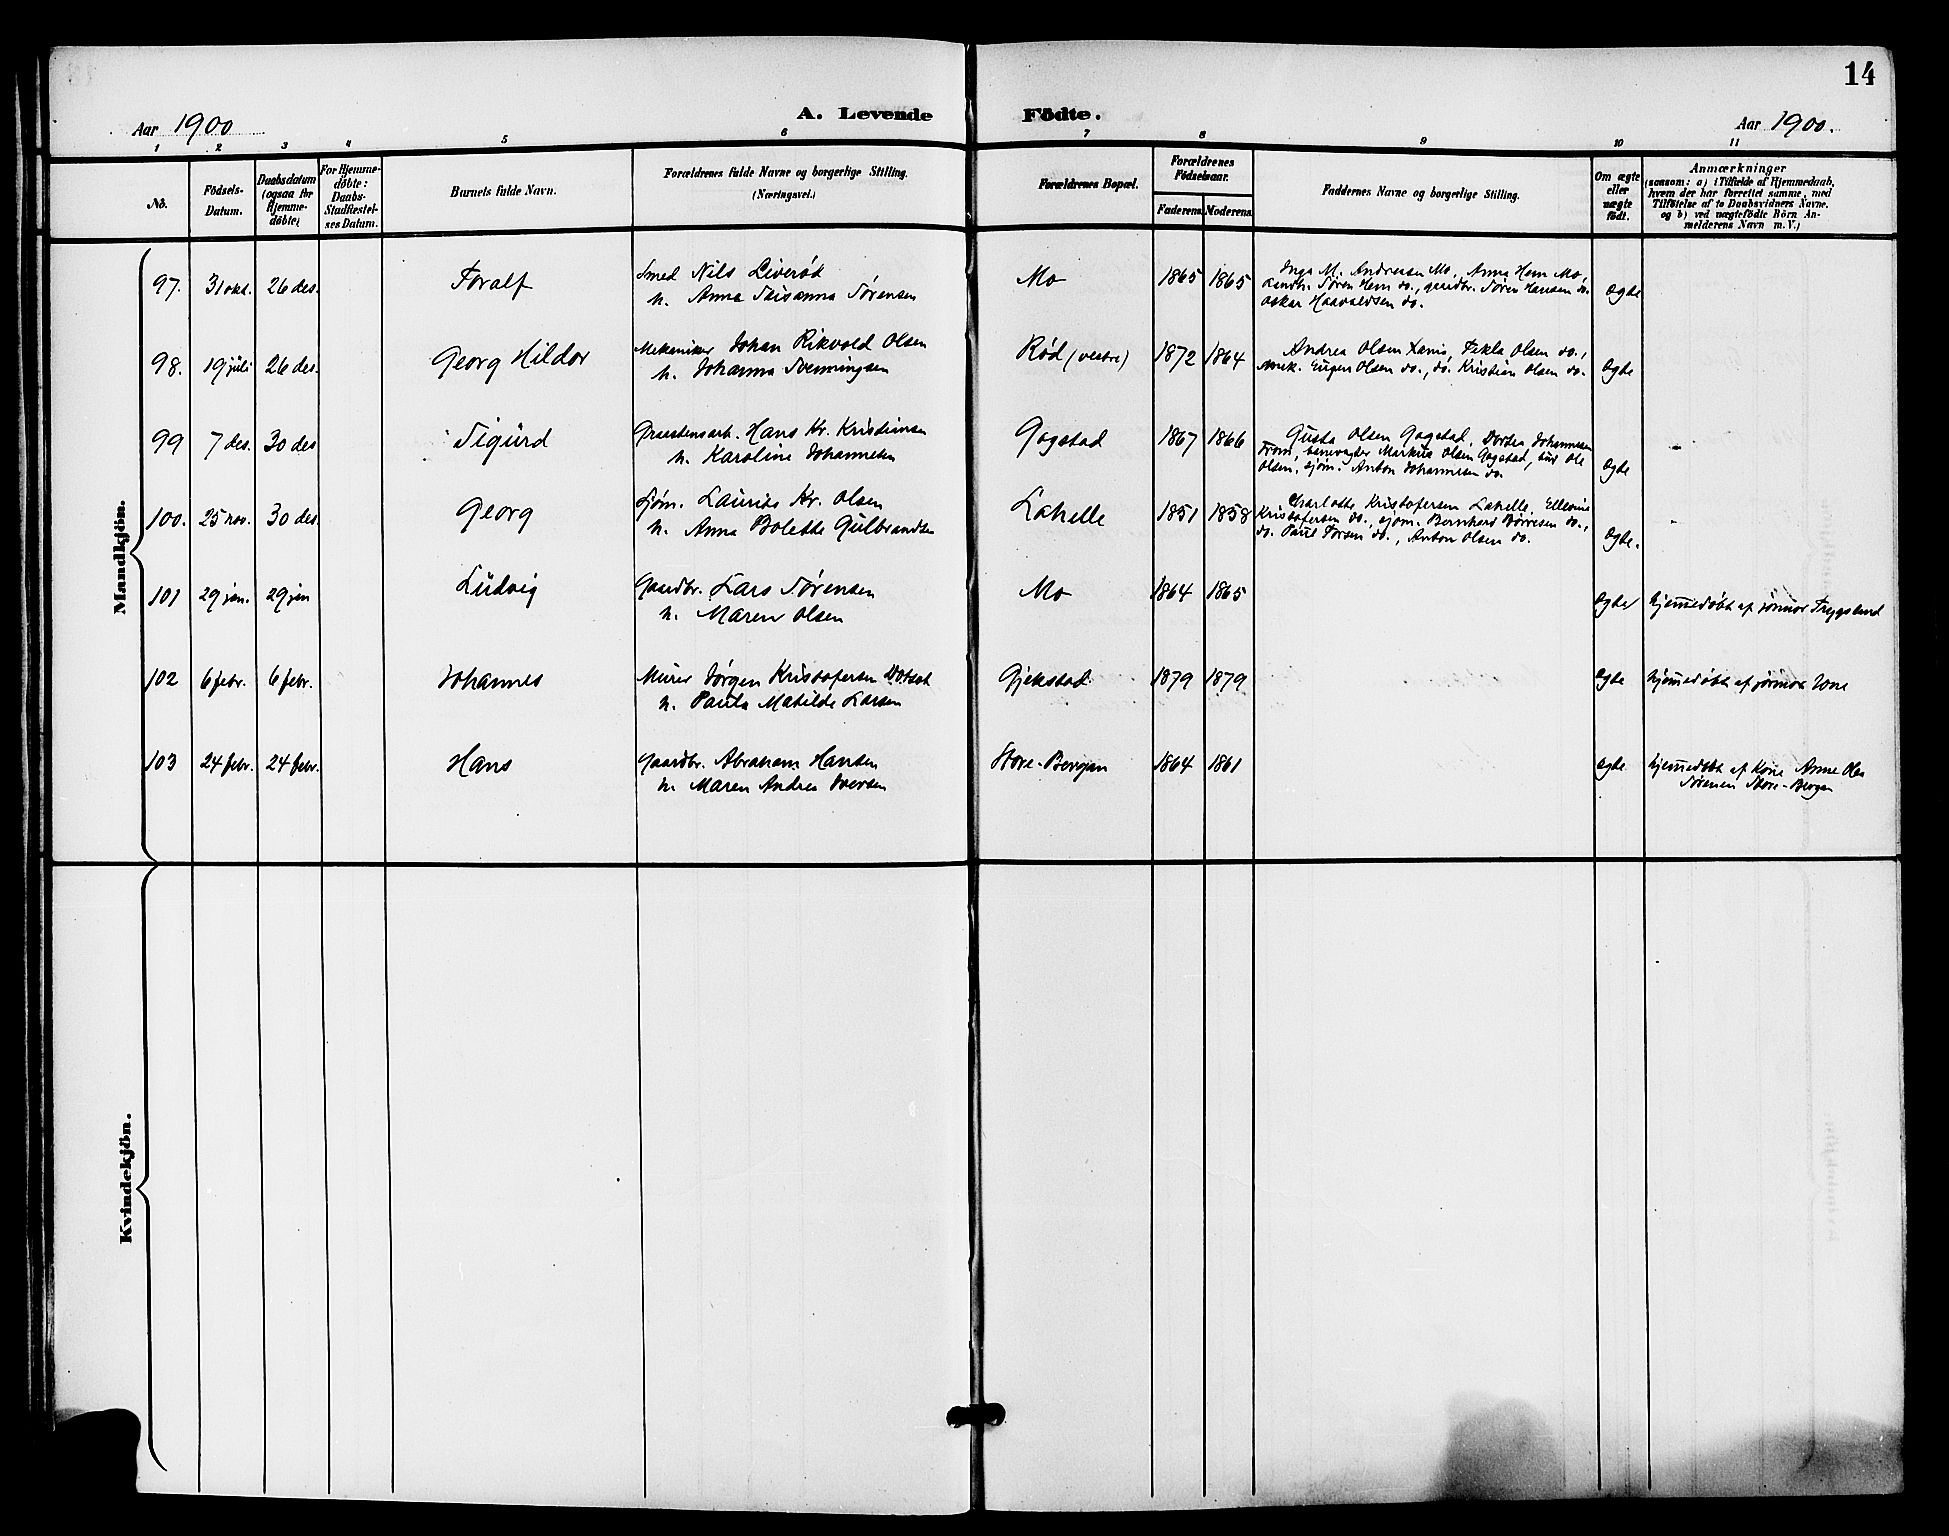 14
Aar 1900
A. Levende
Födte.
Aar 1900.
1 2 3 4 5 6 7 8 9 10 11
No.
Födsels-
Datum.
Daabsdatum
(ogsaa for
Hjemme-
döbte)
For Hjemme-
döbte:
Daabs-
Stadfæstel-
ses Datum.
Barnets fulde Navn.
Forældrenes fulde Navne og borgerlige Stilling.
(Næringsvei.)
Forældrenes Bopæl.
Forældrenes
Födselsaar.
Faderens Moderens
Faddernes Navne og borgerlige Stilling.
Om ægte
eller
uægte
födt.
Anmærkninger
(saasom: a) i Tilfælde af Hjemmedaab,
hvem der har forrettet samme, med
Tilföielse af to Daabsvidners Navne.
og b) ved uægtefödte Börn An-
melderens Navn m. V.)
Mandkjön.
97. 31 okt. 26 des. Toralf
Smed Nils Liverød
h. Anna Susanna Sørensen
Mo 1865 1865
Inga M. Andresen Mo, Anna Hem Mo,
Landh. Søren Hem do., gaardbr. Søren Hansen do.
Oskar Haavaldsen do.
ægte
98. 19 juli 26 des. Georg Hildor
Mekaniker Johan Rikvold Olsen
h. Johanna Svenningsen
Rød (vestre) 1872 1864
Andrea Olsen, Tekla Olsen do.,
mek. Eugen Olsen do., do. Kristian Olsen do.
ægte
99 7 des. 30 des Sigurd
Graastensarb. Hans Kr. Kristiansen
h. Karoline Johannesen
Gogstad 1867 1866
Gusta Olsen Gogstad, Dorthea Johannesen
Fram, banevogter Markus Olsen Gogstad, Ole
Olsen, sjøm. Anton Johannesen do.
ægte -
100. 25 nov. 30 des. Georg
Sjøm. Laurits Kr. Olsen
h. Anna Bolette Gulbrandsen
Lahelle 1851 1858
Charlotte Kristofersen Lahelle, Ellevine
Kristofersen do., sjøm. Bernhard Børresen do.,
do. Paul Torsen do., Anton Olsen do.
ægte. -
101 29 jan. 29 jan Ludvig
Gaardbr. Lars Sørensen
h. Maren Olsen
Mo 1864 1865
ægte hjemmedøbt af jormor Trygslund
102 6 febr. 6 febr. Johannes
Murer Jørgen Kristofersen
h. Paula Matilde Larsen
Gjekstad 1879 1879
ægte hjemmedøbt af jormor
103 24 febr. 24 febr. Hans
Gaardbr. Abraham Hansen
h. Maren Andrea Iversen
Store-Bergan 1864 1861
ægte hjemmedøbt af Kone Anne
Sørensen Store-Bergan
Kvindekjön.